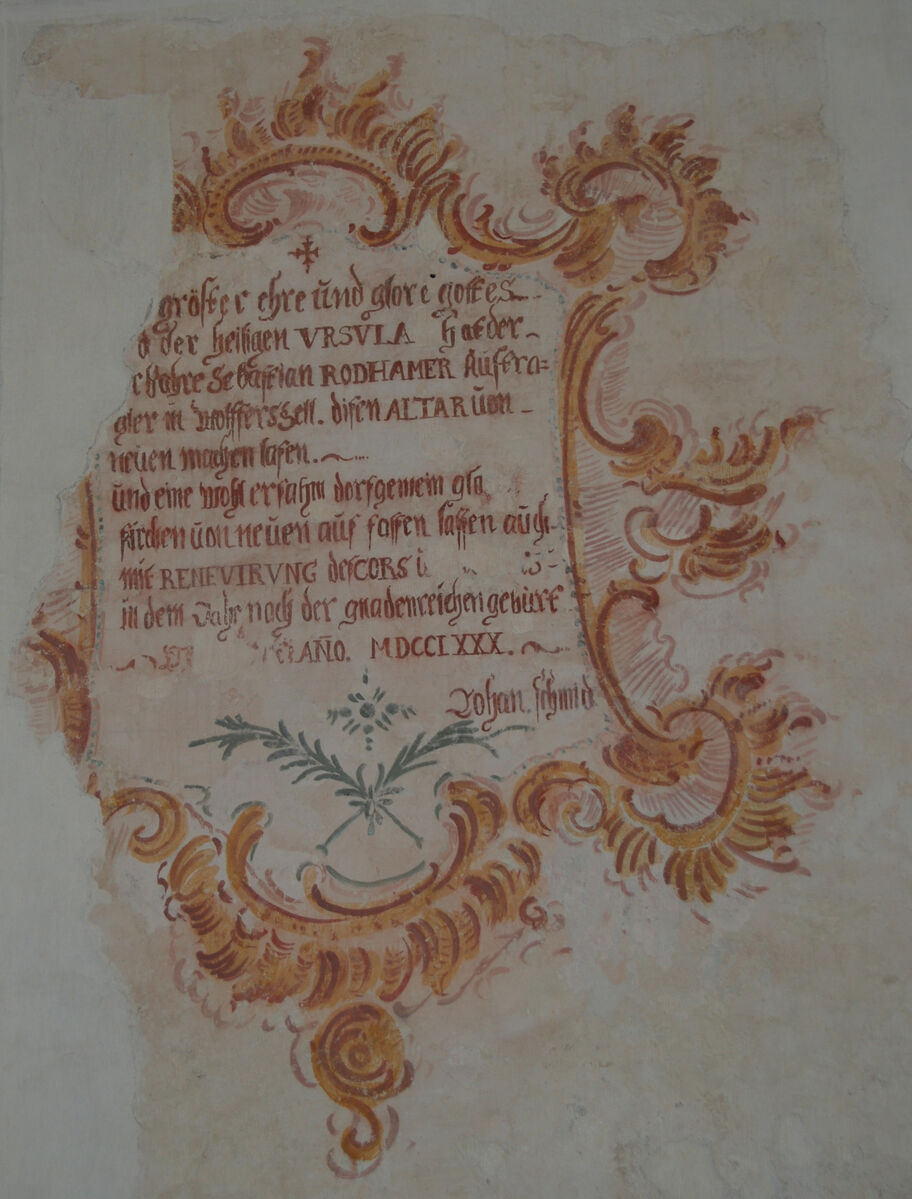 gröster ehre ünd glori gottes
der heiligen VRSVLA hat der
Sebastian RODHAMER Aüstra=
gler in Wolffersgell. disen ALTAR üon
neüen machen lasen.
ünd eine wohl erfahrn dorfgemein
kirchen üon neüen aüs fassen lassen aüch
mit RENEVIRVNG des CORS
in dem Jahr nach der gnadenreichen gebürt
AÑO. MDCCLXXX.
Johan. schmid